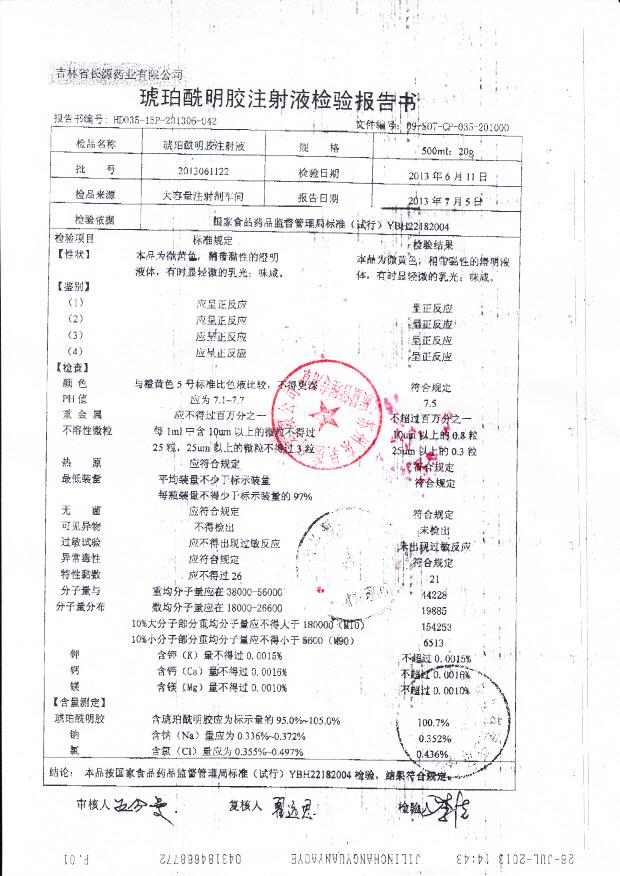 吉林省长源药业有限公司
琥珀酰明胶注射液检验报告书
报告书编号: HD035-15P-201306-042 文件编号: 09-SOT-CP-035-201000
检品名称 琥珀酰明胶注射液 规 格 500ml: 20g
批 号 2013061122 检验日期 2013 年 6 月 11 日
检品来源 大容量注射剂车间 报告日期 2013 年 7 月 5 日
检验依据 国家食品药品监督管理局标准（试行）YBH22182004
检验项目 标准规定 检验结果
【性状】 本品为微黄色，稍带黏性的澄明 本品为微黄色，稍带黏性的澄明液
液体，有时显轻微的乳光；味咸。 体，有时显轻微的乳光；味咸。
【鉴别】
（1） 应呈正反应 呈正反应
（2） 应呈正反应 呈正反应
（3） 应呈正反应 呈正反应
（4） 应呈正反应 呈正反应
【检查】
颜 色 与橙黄色 5 号标准比色液比较，不得更深 符合规定
PH 值 应为 7.1~7.7 7.5
重 金 属 应不得过百万分之一 不超过百万分之一
不溶性微粒 每 1ml 中含 10um 以上的微粒不得过 10um 以上的 0.8 粒
25 粒，25um 以上的微粒不得过 3 粒 25um 以上的 0.3 粒
热 原 应符合规定 符合规定
最低装量 平均装量不少于标示装量 符合规定
每瓶装量不得少于标示装量的 97%
无 菌 应符合规定 符合规定
可见异物 不得检出 未检出
过敏试验 应不得出现过敏反应 未出现过敏反应
异常毒性 应符合规定 符合规定
特性黏数 应不得过 26 21
分子量与 重均分子量应在 38000-56000 44228
分子量分布 数均分子量应在 18000-26600 19885
10%大分子部分重均分子量应不得大于 180000（M10） 154253
10%小分子部分重均分子量应不得小于 5600（M90） 6513
钾 含钾（K）量不得过 0.0015% 不超过 0.0015%
钙 含钙（Ca）量不得过 0.0016% 不超过 0.0016%
镁 含镁（Mg）量不得过 0.0010% 不超过 0.0010%
【含量测定】
琥珀酰明胶 含琥珀酰明胶应为标示量的 95.0%~105.0% 100.7%
钠 含钠（Na）量应为 0.336%~0.372% 0.352%
氯 含氯（Cl）量应为 0.355%~0.497% 0.436%
结论: 本品按国家食品药品监督管理局标准（试行）YBH22182004 检验，结果符合规定。
审核人 复核人 检验人
28-JUL-2013 14:43 JILINCHANGYUANYAOYE 043184668772 P.01